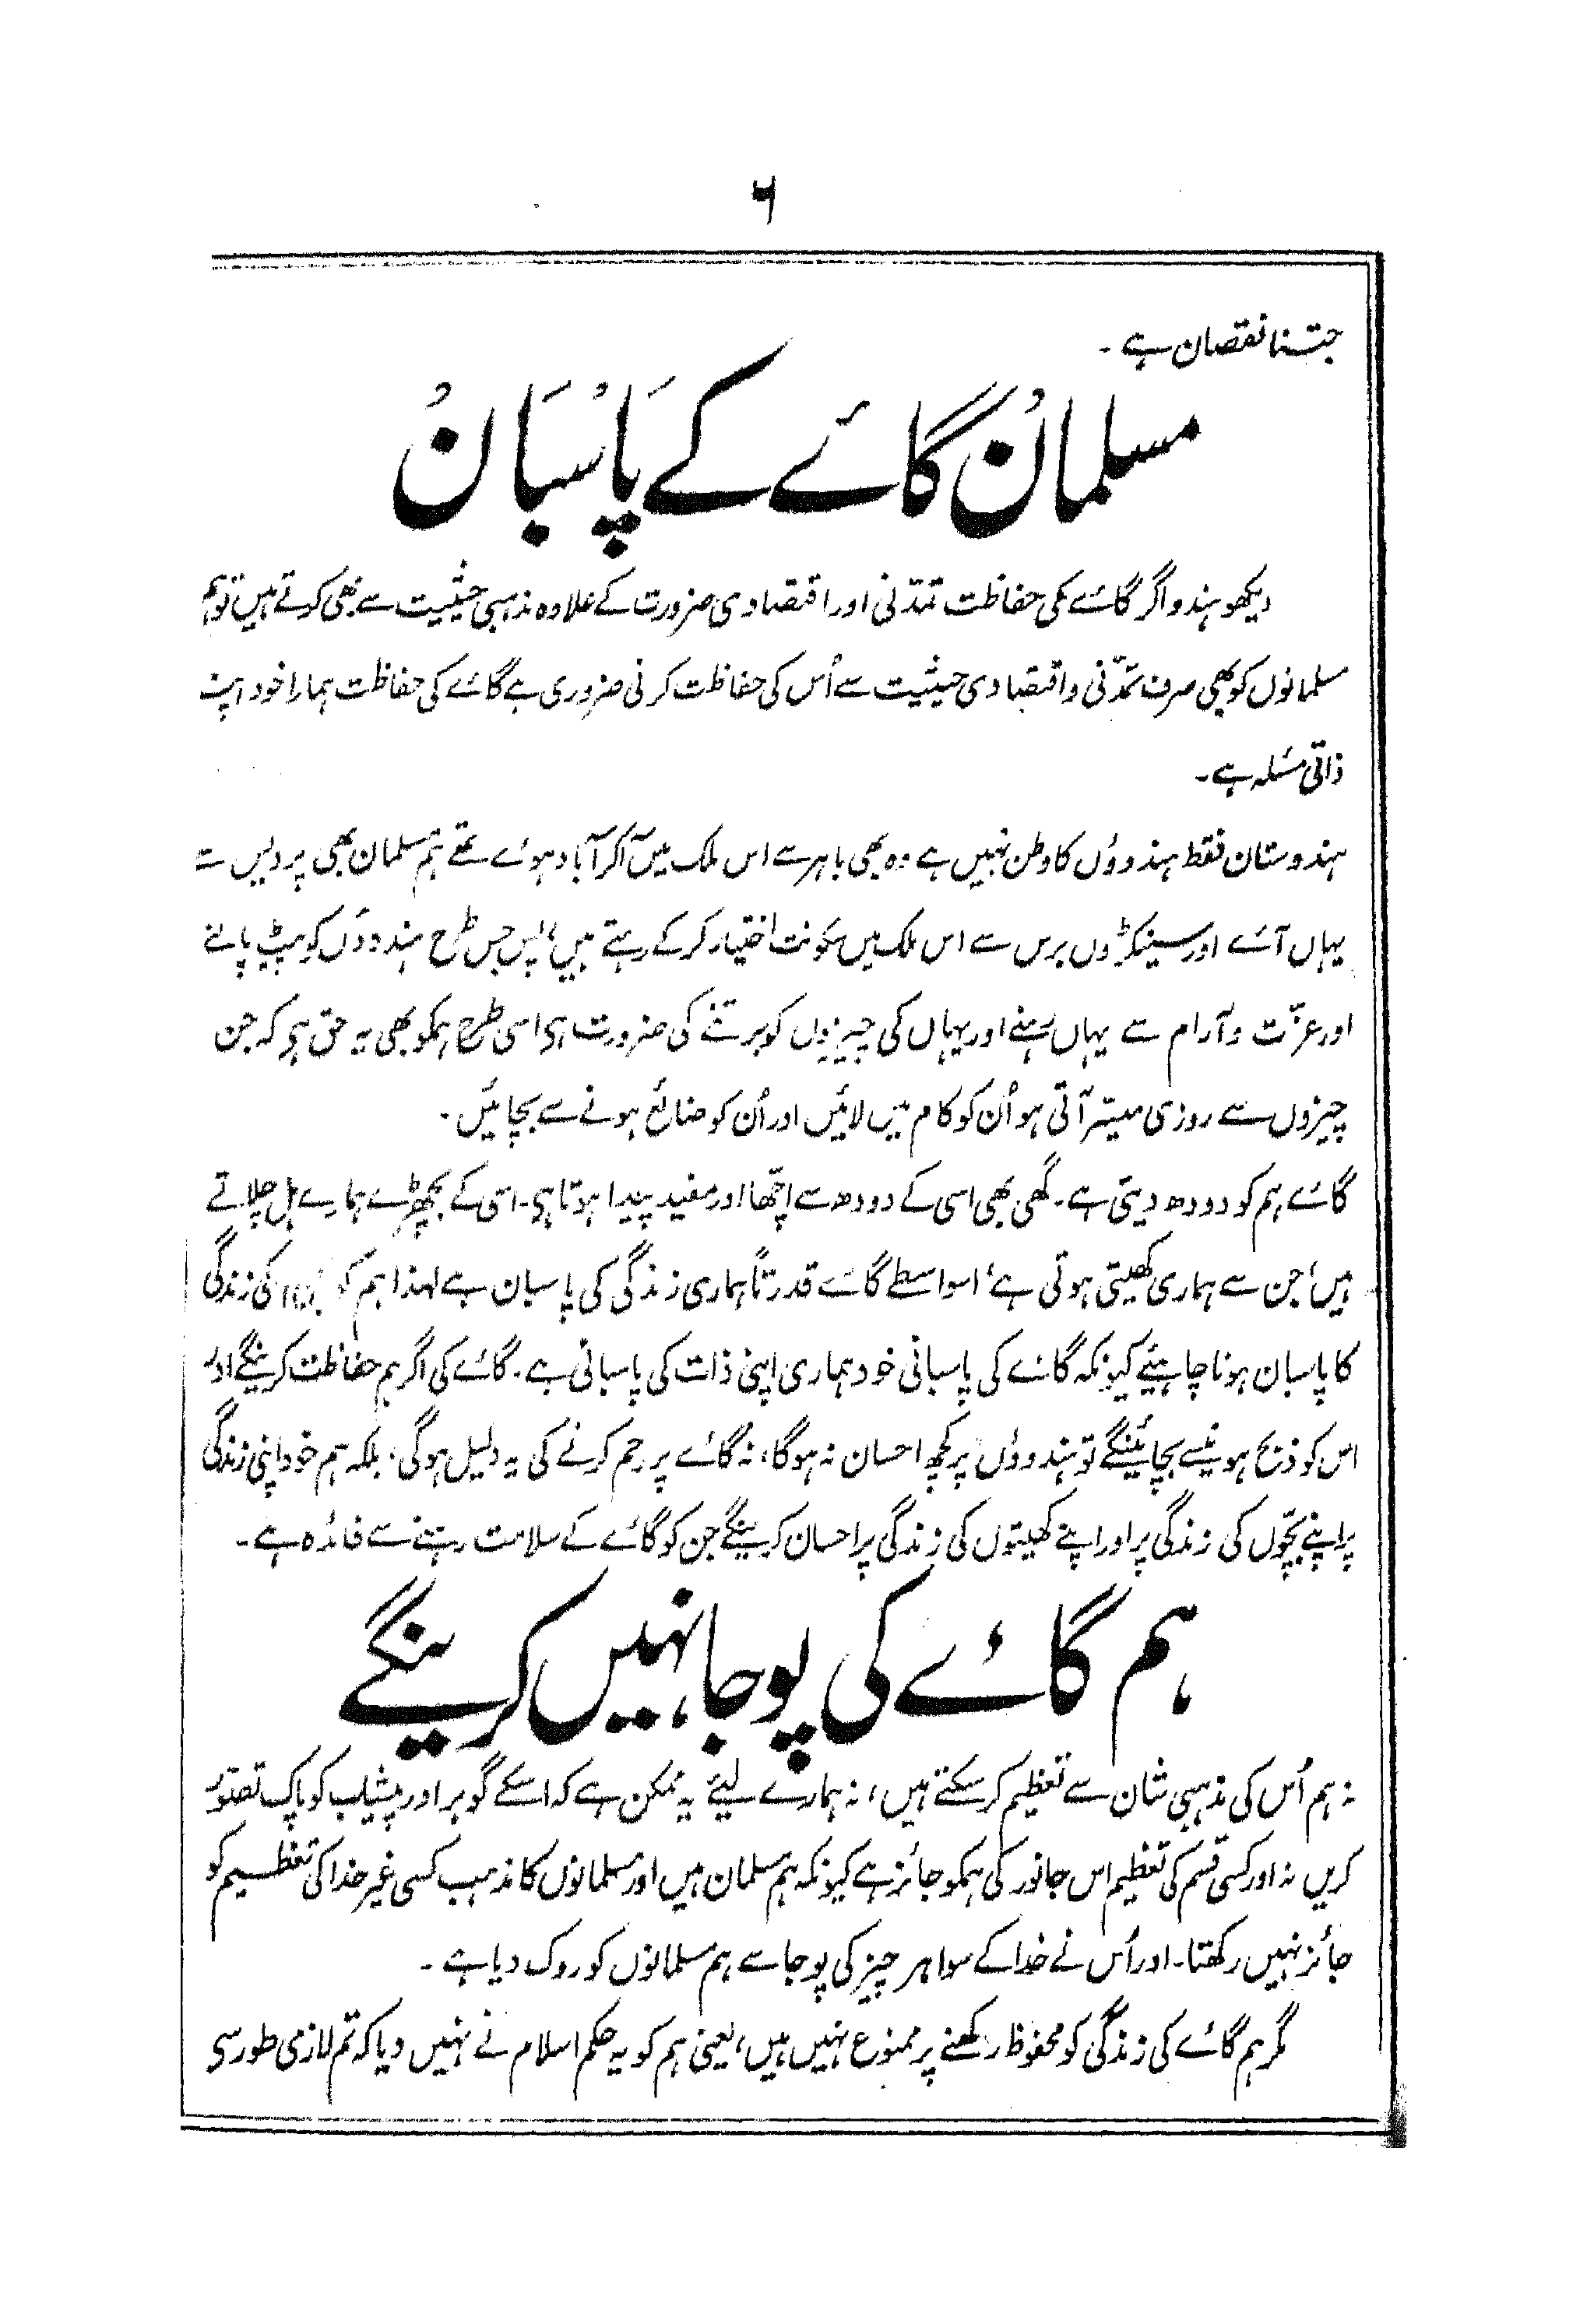 ۶
جتنا نقصان ہے۔
مسلمان گائے کے پاسبان
دیکھو ہندو اگر گائے کی حفاظت تمدّنی اور اقتصادی ضرورت کے علاوہ مذہبی حیثیت سے بھی کرتے ہیں تو ہم
مسلمانوں کو بھی صرف تمدّنی و اقتصادی حیثیت سے اُس کی حفاظت کرنی ضروری ہے گائے کی حفاظت ہمارا خود اپنا
ذاتی مسئلہ ہے۔
ہندوستان فقط ہندوؤں کا وطن نہیں ہے وہ بھی باہر سے اس ملک میں آکر آباد ہوئے تھے ہم مسلمان بھی پردیس سے
یہاں آئے اور سینکڑوں برس سے اس ملک میں سکونت اختیار کرکے رہتے ہیں، پس جس طرح ہندوؤں کو پیٹ پالنے
اور عزّت و آرام سے یہاں رہنے اور یہاں کی چیزوں کو برتنے کی ضرورت ہی اسی طرح ہمکو بھی یہ حق ہی کہ جن
چیزوں سے روزی میسّر آتی ہو اُن کو کام میں لائیں اور اُن کو ضائع ہونے سے بچائیں۔
گائے ہم کو دودھ دیتی ہے۔ گھی بھی اسی کے دودھ سے اچھّا اور مفید پیدا ہوتا ہی۔ اسی کے بچھڑے ہمارے ہل چلاتے
ہیں، جن سے ہماری کھیتی ہوتی ہے، اسواسطے گائے قدرتاً ہماری زندگی کی پاسبان ہے لہذا ہم کو کی زندگی
کا پاسبان ہونا چاہیئے کیونکہ گائے کی پاسبانی خود ہماری اپنی ذات کی پاسبانی ہے۔ گائے کی اگر ہم حفاظت کرینگے اور
اس کو ذبح ہونیسے بچائینگے تو ہندوؤں پر کچھ احسان نہ ہوگا، نہ گائے پر رحم کرنے کی یہ دلیل ہوگی، بلکہ ہم خود اپنی زندگی
پر اپنے بچّوں کی زندگی پر اور اپنے کھیتوں کی زندگی پر احسان کرینگے جن کو گائے کے سلامت رہنے سے فائدہ ہے۔
ہم گائے کی پوجا نہیں کرینگے
نہ ہم اُس کی مذہبی شان سے تعظیم کرسکتے ہیں، نہ ہمارے لیئے یہ ممکن ہے کہ اسکے گوبر اور پیشاب کو پاک تصوّر
کریں نہ اور کسی قسم کی تعظیم اس جانور کی ہمکو جائز ہے کیونکہ ہم مسلمان ہیں اور مسلمانوں کا مذہب کسی غیر خدا کی تعظیم کو
جائز نہیں رکھتا۔ اور اُس نے خدا کے سوا ہر چیز کی پوجا سے ہم مسلمانوں کو روک دیا ہے۔
مگر ہم گائے کی زندگی کو محفوظ رکھنے پر ممنوع نہیں ہیں، یعنی ہم کو یہ حکم اسلام نے نہیں دیا کہ تم لازمی طور سی